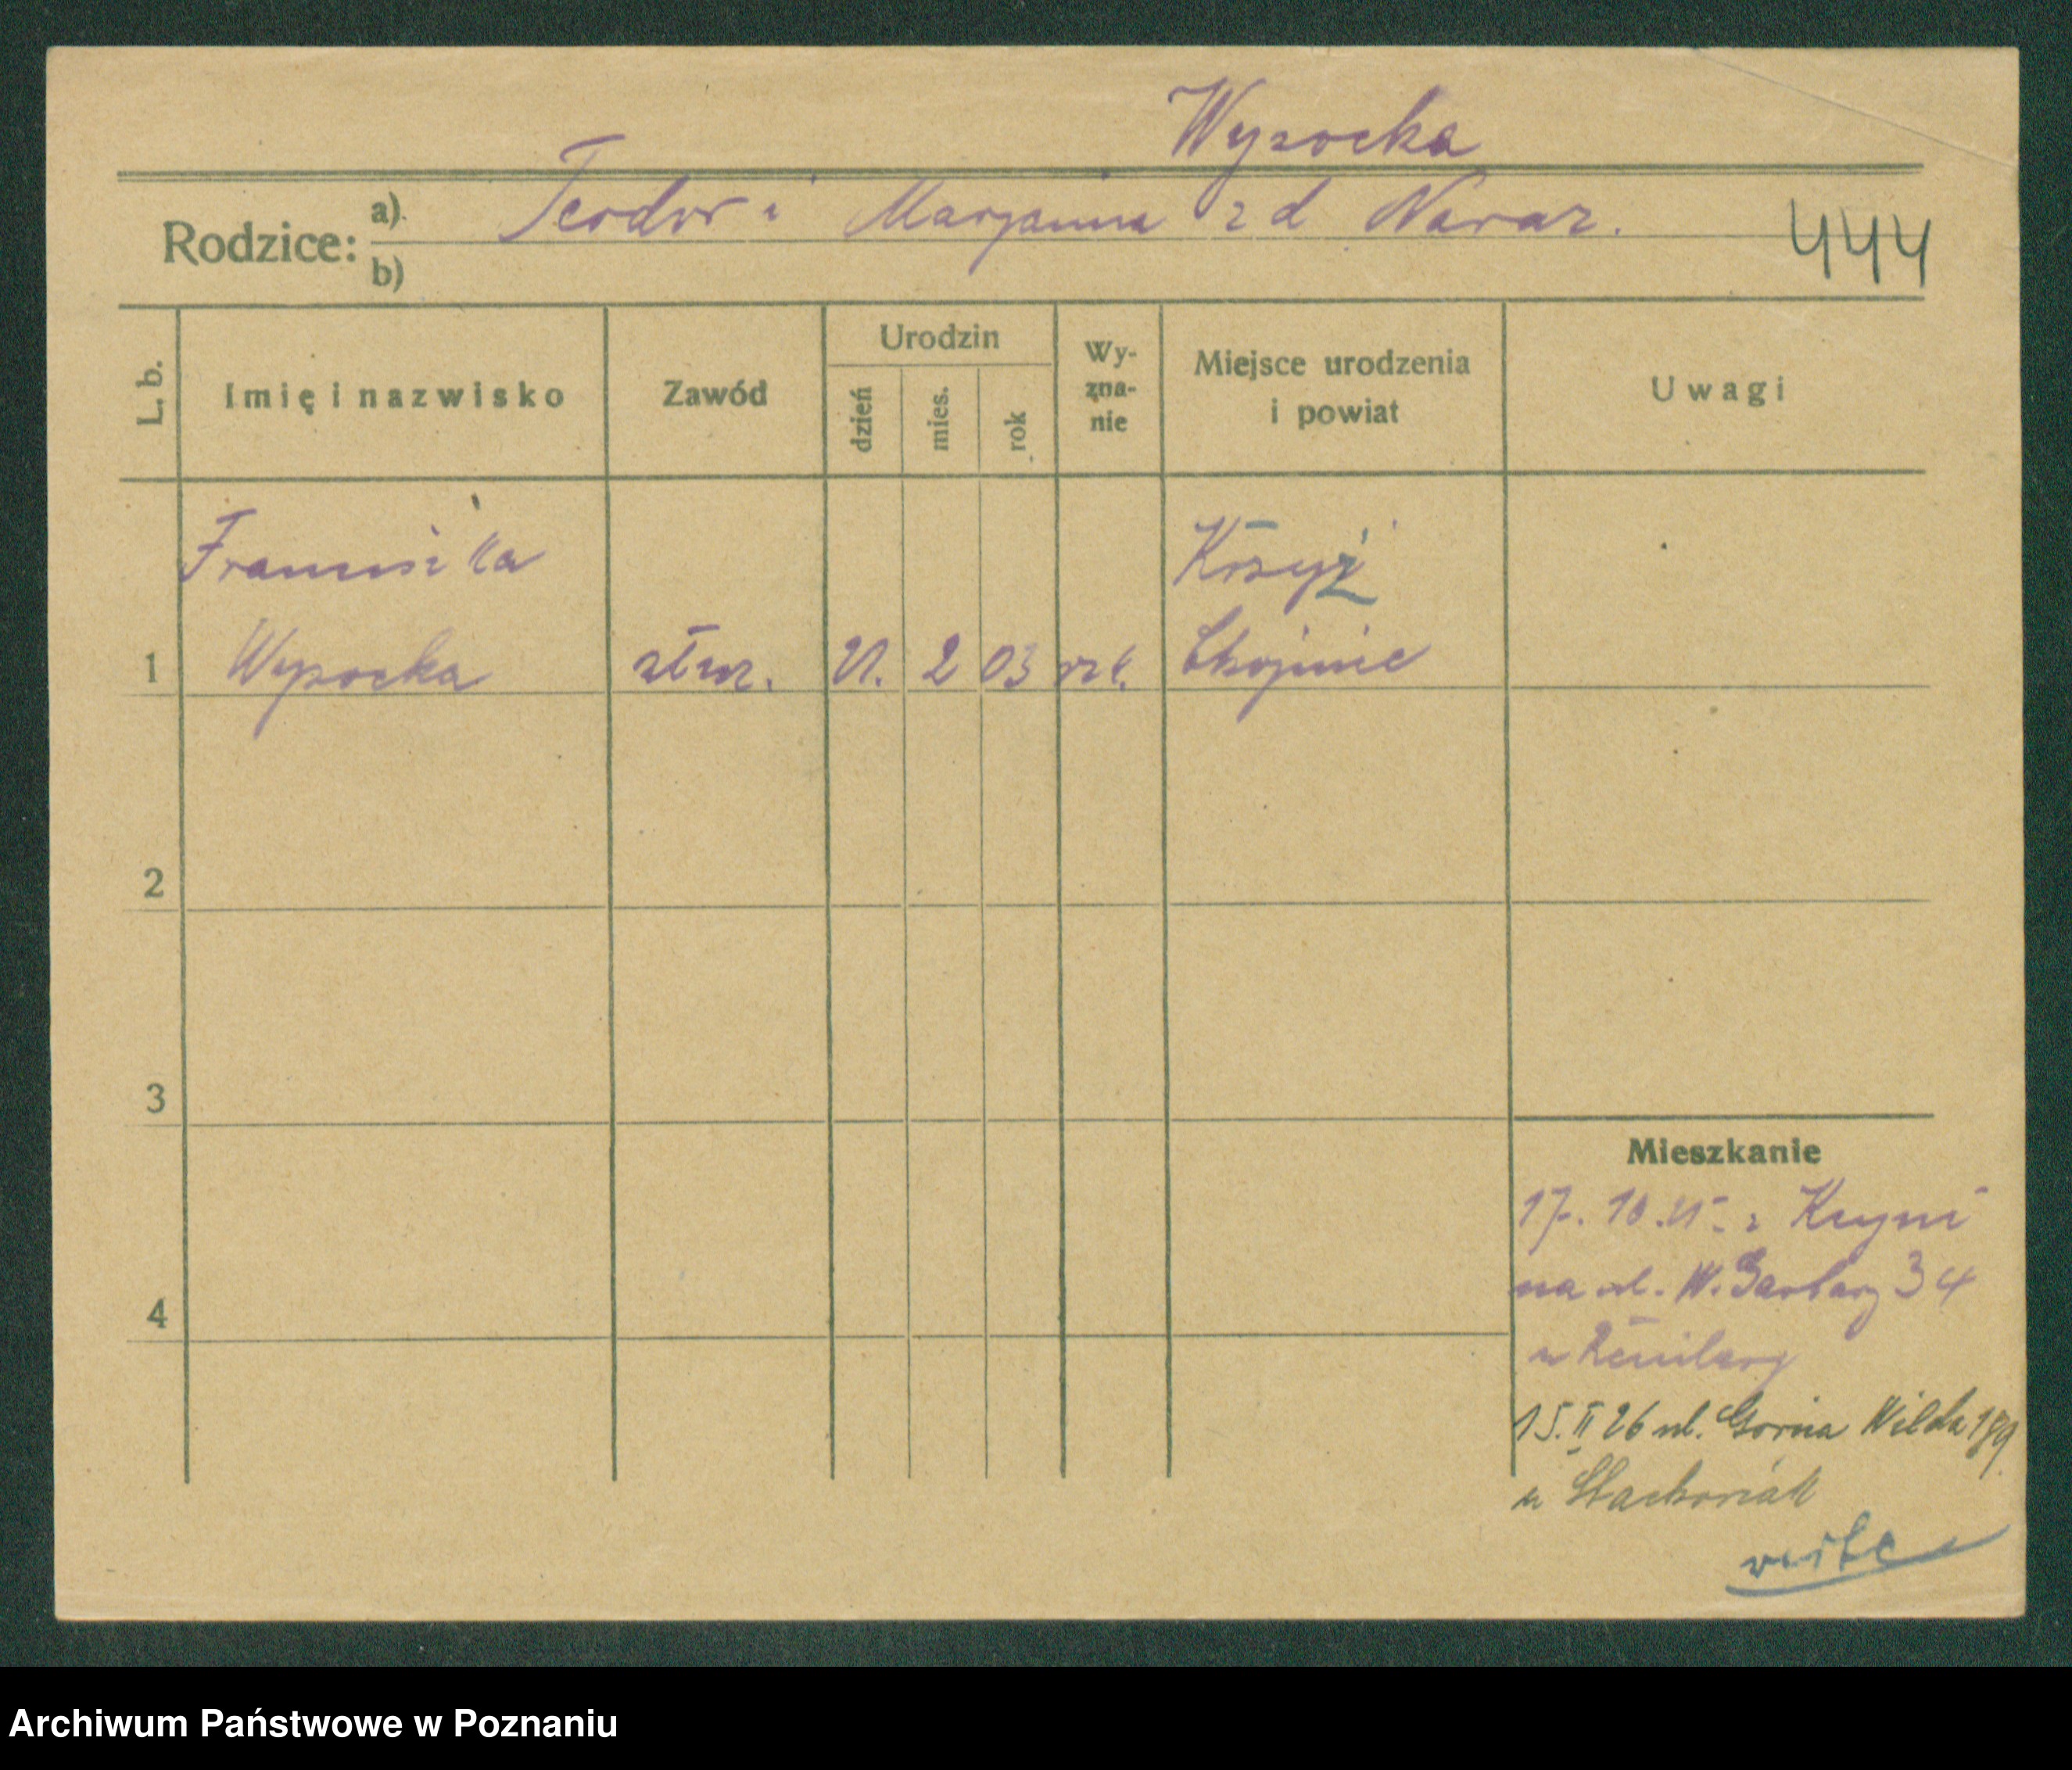 Wysocka
Rodzice: a) Teodor i Marjanna z d Nawar.
b)
444
L. b.
Imię i nazwisko
Zawód
Urodzin
dzień
mies.
rok
Wy-
zna-
nie
Miejsce urodzenia
i powiat
Uwagi
Franciszka
Krzyż
1 Wysocka służ. 21. 2 03 rzk. Chojnice
2
3
4
Mieszkanie
17. 10. 25. z
na ul. W. Garbary 34
u
15. II 26 ul. Gorna Wilda 189
u Stachowiak
verte
Archiwum Państwowe w Poznaniu